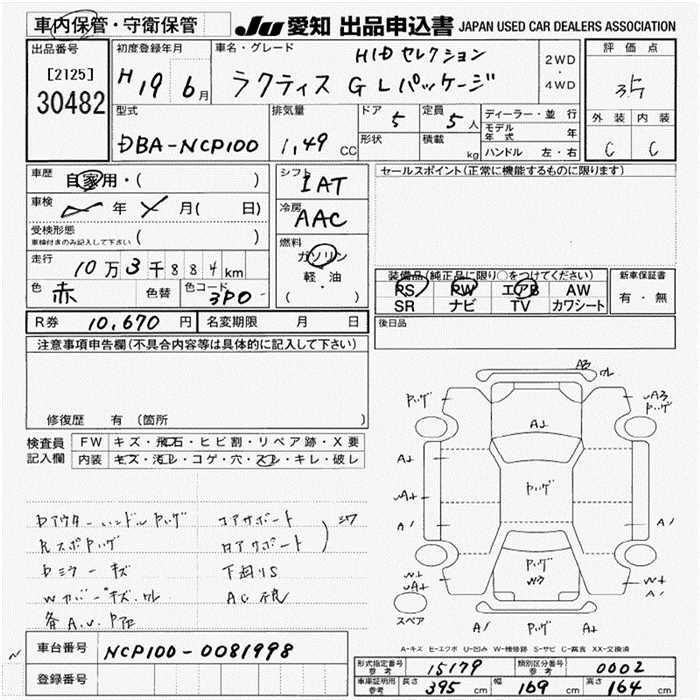 車内保管・守衛保管
JU 愛知 出品申込書 JAPAN USED CAR DEALERS ASSOCIATION
出品番号
[2125]
30482
初度登録年月
H19 6月
車名・グレード
HIDセレクション
ラクティス GLパッケージ
2WD
・
4WD
評価点
3.5
外装 内装
C C
型式
DBA-NCP100
排気量
1,49 CC
ドア 5
形状
定員 5人
積載 kg
ディーラー・並行
モデル年式 年
ハンドル 左・右
車歴 自家用・( )
車検 年 月( 日)
受検形態
車検付きのみ記入して下さい ( )
走行 10万3千884km
色 赤 色替 色コード 3P0
シフト IAT
冷房 AAC
燃料
ガソリン
軽・油
( )
セールスポイント(正常に機能するものに限ります)
装備品(純正品に限り○をつけてください)
PS PW エアB AW
SR ナビ TV カワシート
新車保証書
有・無
R券 10,670円 名変期限 月 日
後日品
注意事項申告欄(不具合内容等は具体的に記入して下さい)
修復歴 有 (箇所 )
検査員記入欄
FW キズ・飛石・ヒビ割・リペア跡・X要
内装 キズ・汚レ・コゲ・穴・スレ・キレ・破レ
アウターハンドル
コアサポート
ミラーキズ
下廻りS
スペア
A-キズ E-エクボ U-凹み W-補修跡 S-サビ C-腐食 XX-交換済
車台番号 NCP100-0081998
登録番号
形式指定番号 参考 15179 類別区分番号 参考 0002
車庫証明用 参考 長さ 395 cm 幅 169 cm 高さ 164 cm